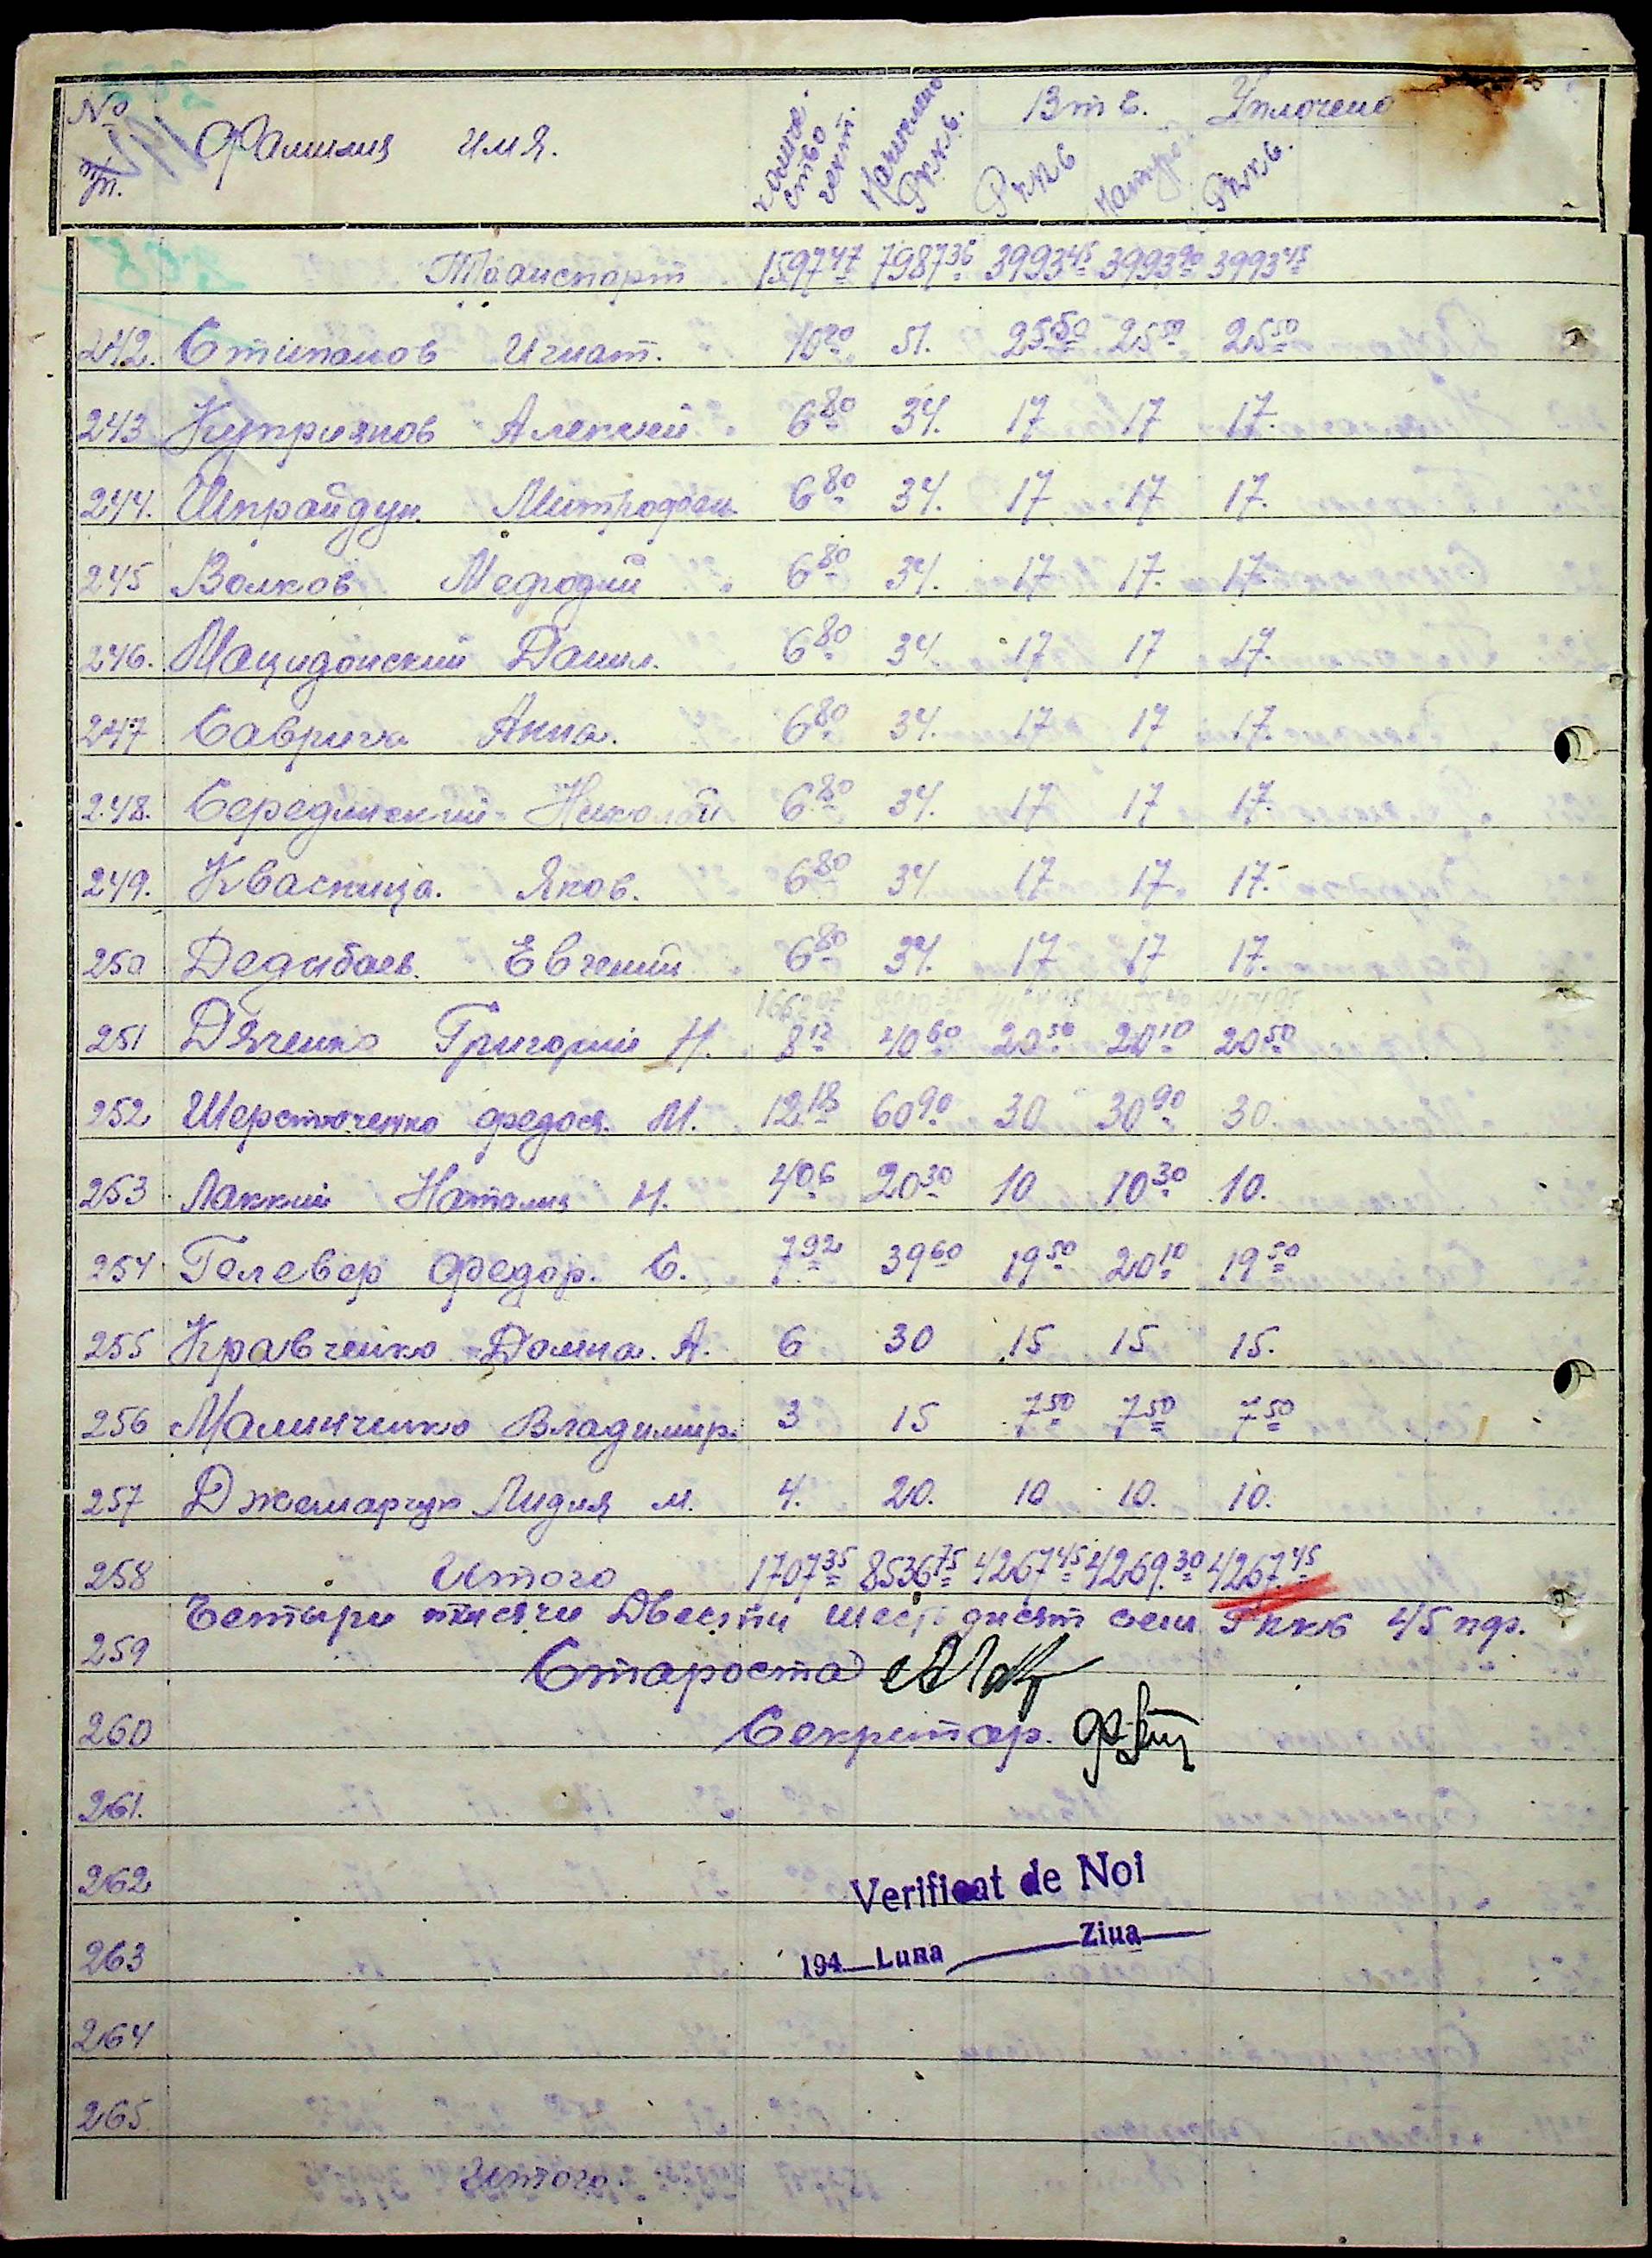 № п/п. Фамилия имя. количество гект. Начислено Рккв. В т ч. Уплочено
Рккв натурой Рккв.
Транспорт 1597 47 7987 35 3993 45 3993 90 3993 45
242. Стипанов Игнат. 10 20 51. 25 50 25 50 25 50
243 Куприянов Алексей 6 80 34. 17 17 17.
244. Шпрайдун. Митрофан. 6 80 34. 17 17 17.
245 Волков Мефодий 6 80 34. 17 17. 17.
246. Мацидонский Данил. 6 80 34. 17 17 17.
247 Саврига Анна. 6 80 34. 17 17 17.
248. Серединский Николай 6 80 34. 17 17 17.
249. Квасница. Яков. 6 80 34 17 17 17.
250 Дедибаев. Евгений 6 80 34. 17 17 17.
251 Дяченко Григорий Н. 8 12 40 60 20 50 20 10 20 50
252 Шерстюченко федося. М. 12 18 60 90 30 30 90 30.
253 Лаккий Наталия Н. 4 06 20 30 10 10 30 10.
254 Гелевер Федор. С. 7 92 39 60 19 50 20 10 19 50
255 Кравченко Домна. А. 6 30 15 15 15.
256 Малинченко Владимир. 3 15 7 50 7 50 7 50
257 Джемарчук Лидия М. 4. 20. 10 10. 10.
258 Итого 1707 35 8536 75 4267 45 4269. 30 4267. 45
Четыри тисячи Двести шесдисят сем Рккв 45 пф.
259 Староста
260 Секритар.
261.
262
Verificat de Noi
263
194 Luna Ziua
264
265
Итого